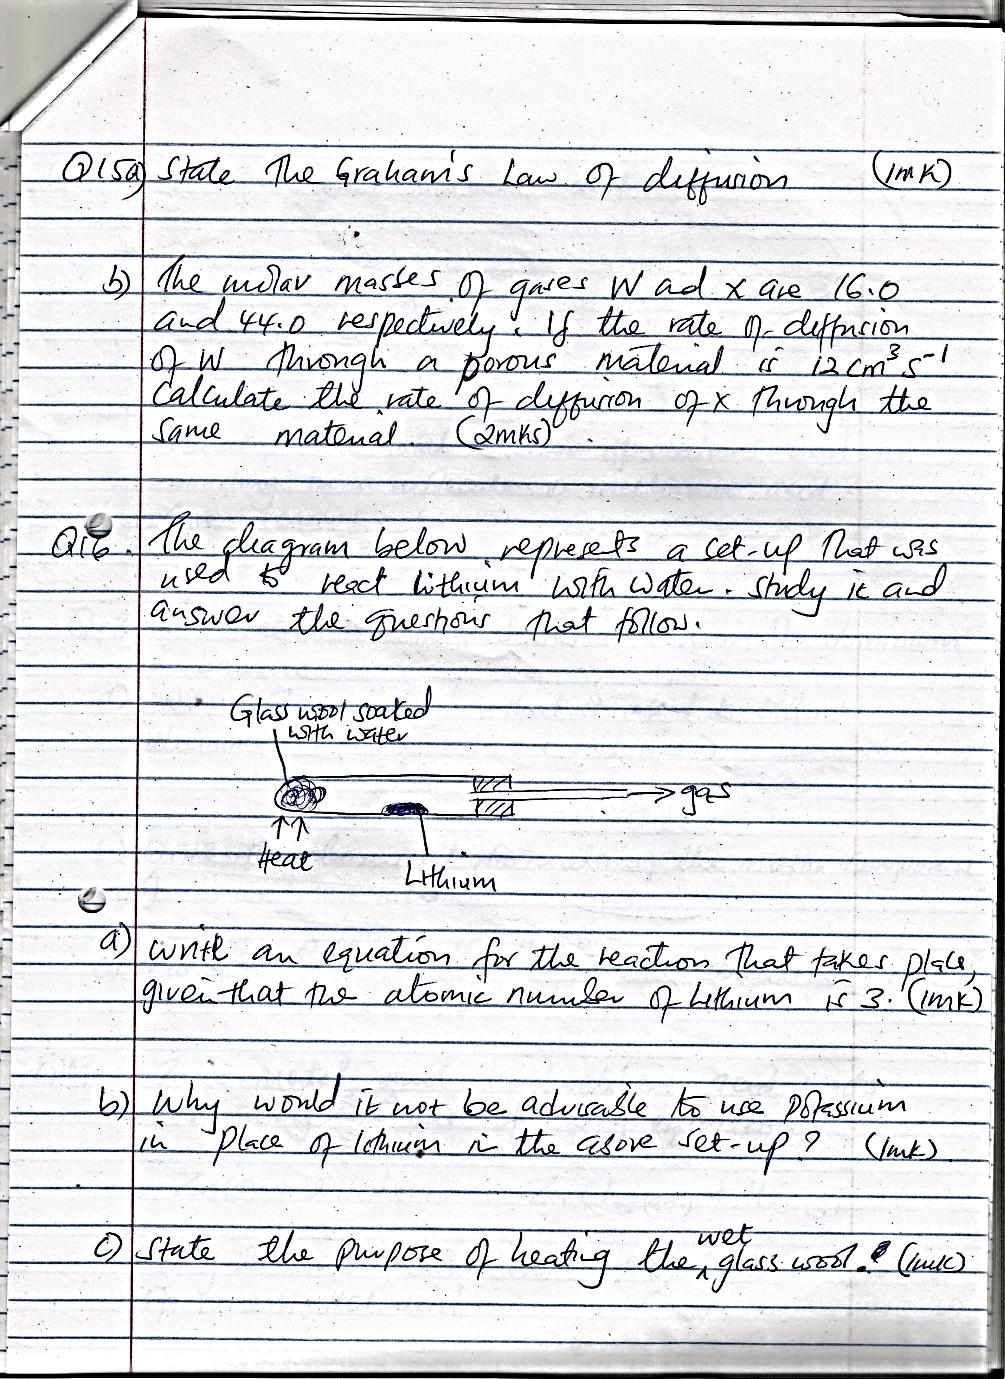 Q15a) State The Graham's Law of diffusion (1mk)
b) The molar masses of gases W ad X are 16.0
and 44.0 respectively. If the rate of diffusion
of W through a porous material is 12cm³s⁻¹
Calculate the rate of diffusion of X through the
same material. (2mks)
Q16. The diagram below represents a set-up that was
used to react lithium with water. Study it and
answer the questions that follow.
Glass wool soaked
with water
gas
Heat
Lithium
a) write an equation for the reaction that takes place,
given that the atomic number of Lithium is 3. (1mk)
b) Why would it not be advisable to use potassium
in place of lithium in the above set-up? (1mk)
c) State the purpose of heating the wet glass wool. (1mk)